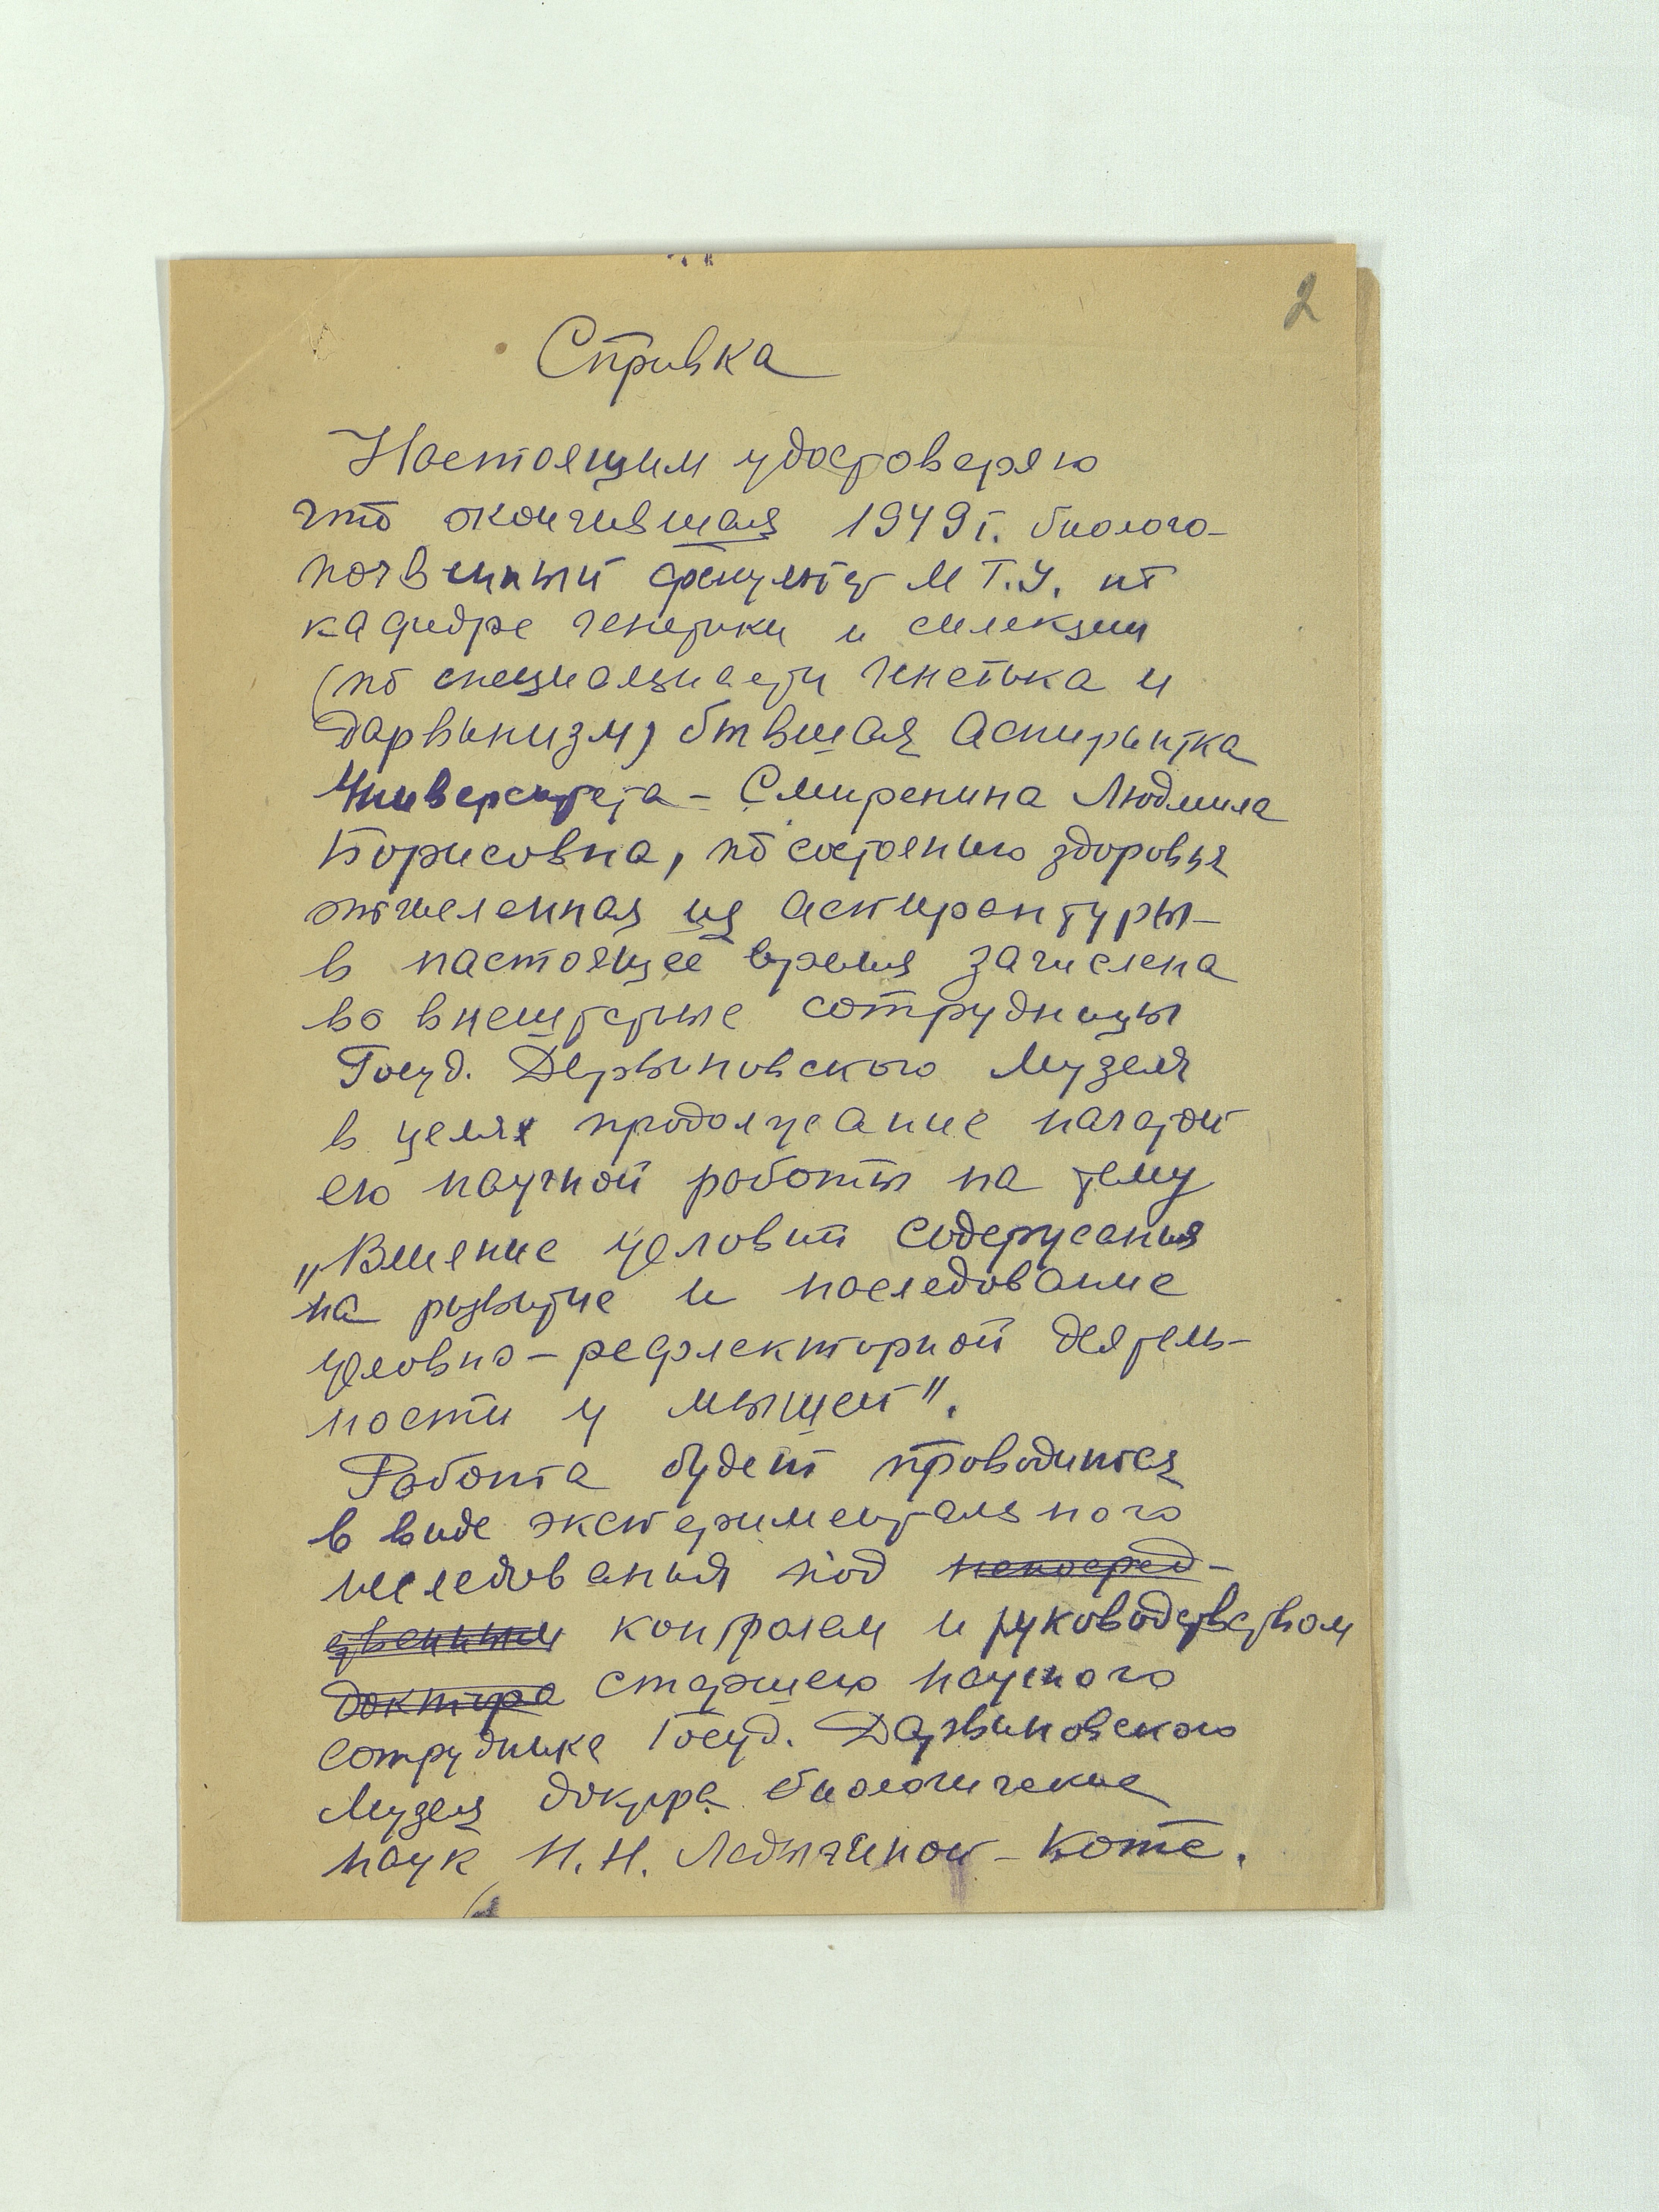 2
Справка
Настоящим удостоверяю
что окончившая 1949 г. биолого-
почвенный факультет М.Г.У. по
кафедре генетики и селекции
(по специальности генетика и
дарвинизм) бывшая аспирантка
Университета – Смиренина Людмила
Борисовна, по состоянию здоровья
отчисленная из аспирантуры –
в настоящее время зачислена
во внештатные сотрудницы
Госуд. Дарвиновского Музея
в целях продолжание начатой
ею научной работы на тему
„Влияние условий содержания
на развитие и наследование
условно-рефлекторной деятель-
ности у мышей".
Работа будет проводиться
в виде экспериментального
исследования под непосред-
ственным контролем и руководством
доктора старшего научного
сотрудника Госуд. Дарвиновского
Музея доктора биологических
наук Н.Н. Ладыгиной-Котс.